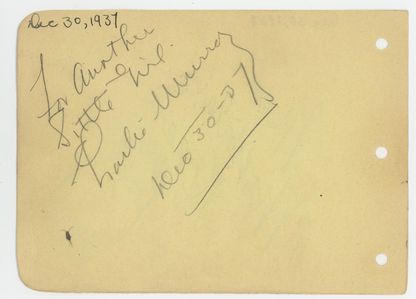 Dec 30, 1937
To Another
Little Girl.
Charlie Murray
Dec 30-37